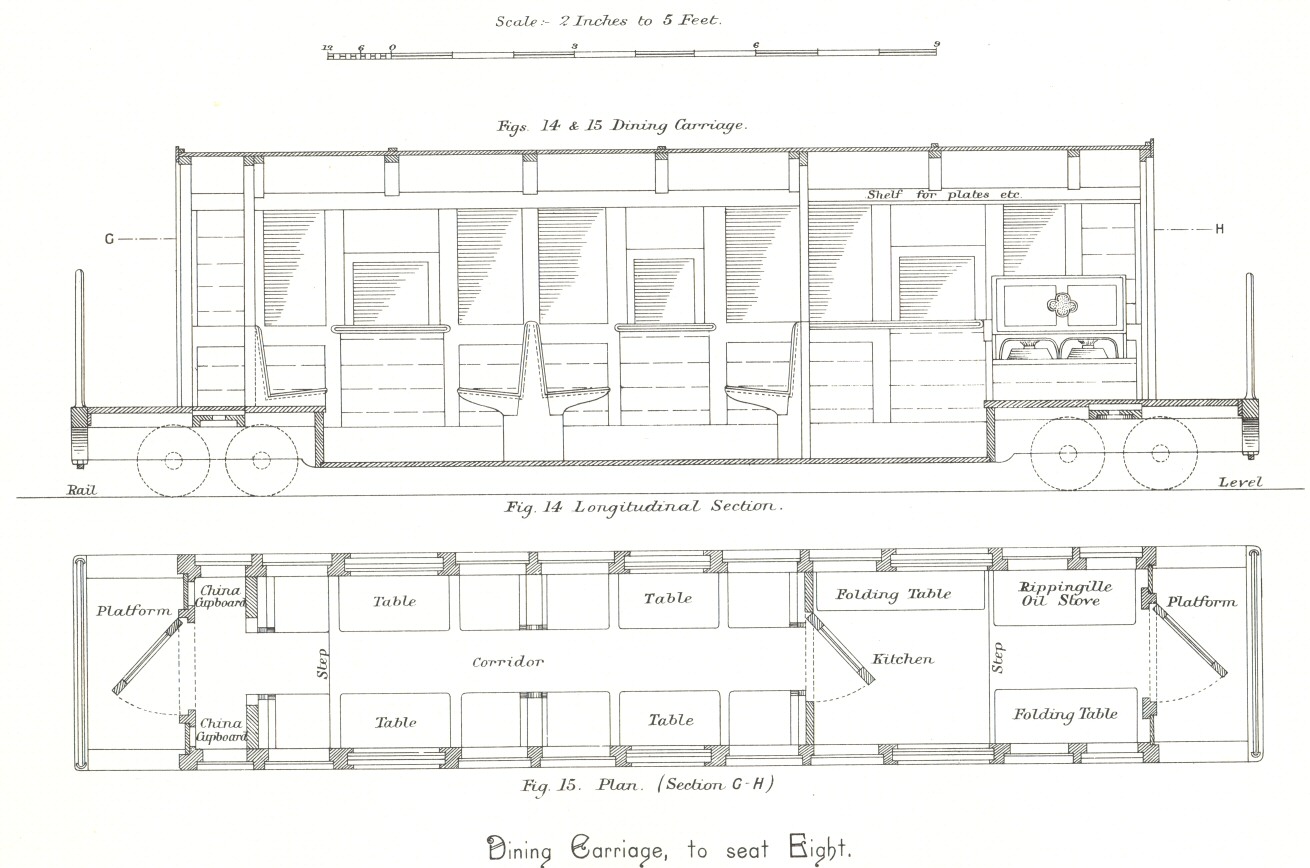 Scale :- 2 Inches to 5 Feet.
12 6 0 3 6 9
Figs. 14 & 15 Dining Carriage.
Shelf for plates etc.
G H
Rail Level
Fig. 14 Longitudinal Section.
China
Cupboard
Platform
Table
Table
Folding Table
Rippingille
Oil Stove
Platform
Step
Corridor
Kitchen
Step
China
Cupboard
Table
Table
Folding Table
Fig. 15. Plan. (Section G-H)
Dining Carriage, to seat Eight.